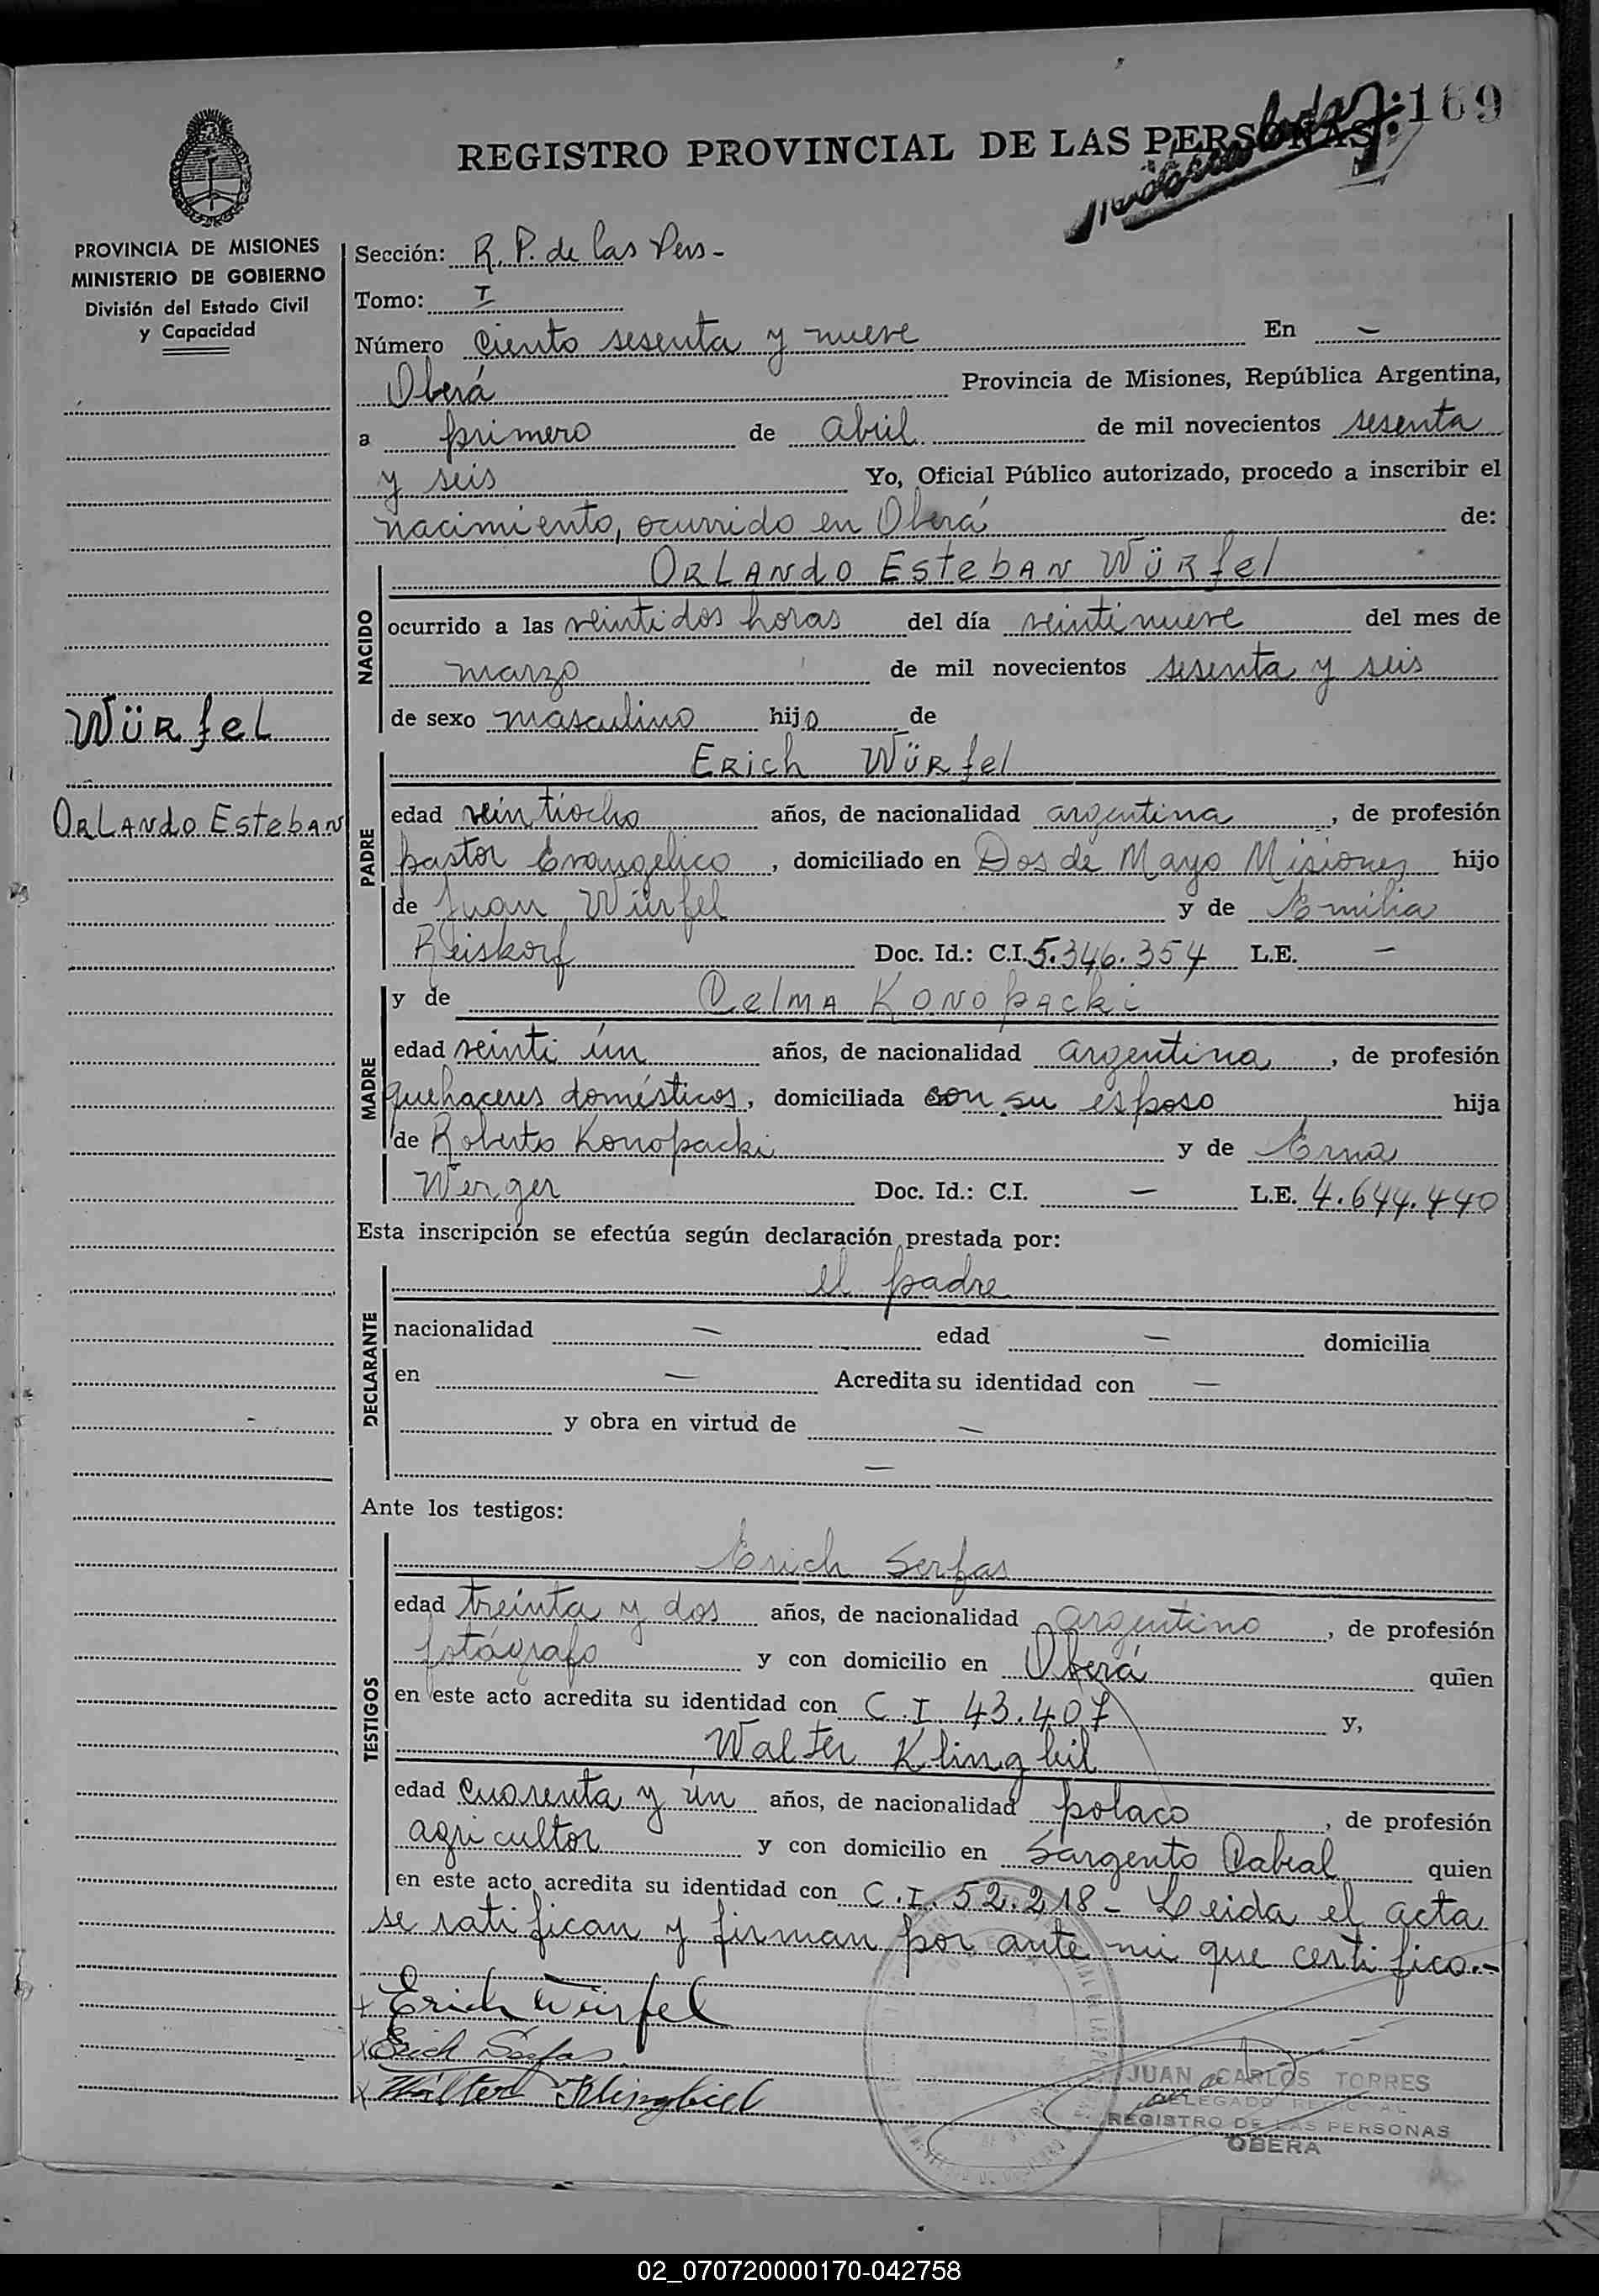 169
REGISTRO PROVINCIAL DE LAS PERSONAS
PROVINCIA DE MISIONES
MINISTERIO DE GOBIERNO
División del Estado Civil
y Capacidad
Würfel
Orlando Esteban
Sección: R. P. de las Pers-
Tomo: I
Número ciento sesenta y nueve En –
Oberá Provincia de Misiones, República Argentina,
a primero de abril de mil novecientos sesenta
y seis Yo, Oficial Público autorizado, procedo a inscribir el
nacimiento, ocurrido en Oberá de:
NACIDO
Orlando Esteban Würfel
ocurrido a las veintidos horas del día veintinueve del mes de
marzo de mil novecientos sesenta y seis
de sexo masculino hijo de
PADRE
Erich Würfel
edad veintiocho años, de nacionalidad argentina, de profesión
pastor Evangelico, domiciliado en Dos de Mayo Misiones hijo
de Juan Würfel y de Emilia
Reiskorf Doc. Id.: C.I. 5.346.354 L.E. –
MADRE
y de Celma Konopacki
edad veinti ún años, de nacionalidad argentina, de profesión
quehaceres domésticos, domiciliada con su esposo hija
de Roberto Konopacki y de Erna
Werger Doc. Id.: C.I. – L.E. 4.644.440
Esta inscripción se efectúa según declaración prestada por:
DECLARANTE
el padre
nacionalidad – edad – domicilia
en – Acredita su identidad con –
y obra en virtud de –
–
Ante los testigos:
TESTIGOS
Erich Serfas
edad treinta y dos años, de nacionalidad argentino, de profesión
fotógrafo y con domicilio en Oberá quien
en este acto acredita su identidad con C.I 43.407 y,
Walter Klingbil
edad cuarenta y ún años, de nacionalidad polaco, de profesión
agricultor y con domicilio en Sargento Cabral quien
en este acto acredita su identidad con C.I. 52.218 - Leida el acta
se ratifican y firman por ante mi que certifico.-
x Erich Würfel
x Erich Serfas
x Walter Klingbiel
JUAN CARLOS TORRES
DELEGADO REGIONAL
REGISTRO DE LAS PERSONAS
OBERA
02_070720000170-042758